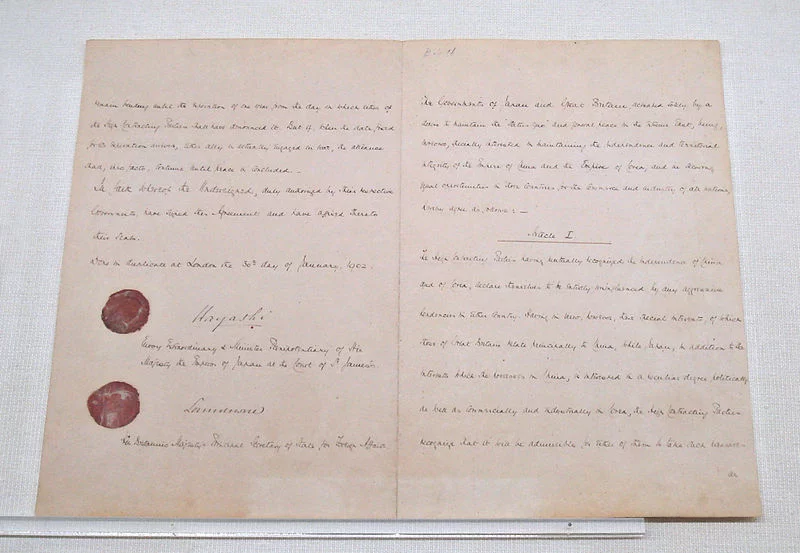 remain binding until the expiration of one year from the day on which either of
the High Contracting Parties shall have denounced it. But if, when the date fixed
for its expiration arrives, either ally is actually engaged in war, the alliance
shall, ipso facto, continue until peace is concluded. -
In faith whereof the Undersigned, duly authorized by their respective
Governments, have signed this Agreement and have affixed thereto
their Seals.
Done in duplicate at London the 30th day of January, 1902.
Hayashi
Envoy Extraordinary & Minister Plenipotentiary of His
Majesty the Emperor of Japan at the Court of St. James's.
Lansdowne
His Britannic Majesty's Principal Secretary of State for Foreign Affairs
The Governments of Japan and Great Britain, actuated solely by a
desire to maintain the status quo and general peace in the Extreme East, being,
moreover, specially interested in maintaining the independence and territorial
integrity of the Empire of China and the Empire of Corea, and in securing
equal opportunities in those countries for the commerce and industry of all nations,
hereby agree as follows : —
Article I.
The High Contracting Parties having mutually recognized the independence of China
and of Corea, declare themselves to be entirely uninfluenced by any aggressive
tendencies in either Country. Having in view, however, their special interests, of which
those of Great Britain relate principally to China, while Japan, in addition to the
interests which she possesses in China, is interested in a peculiar degree politically
as well as commercially and industrially in Corea, the High Contracting Parties
recognize that it will be admissible for either of them to take such measures
as